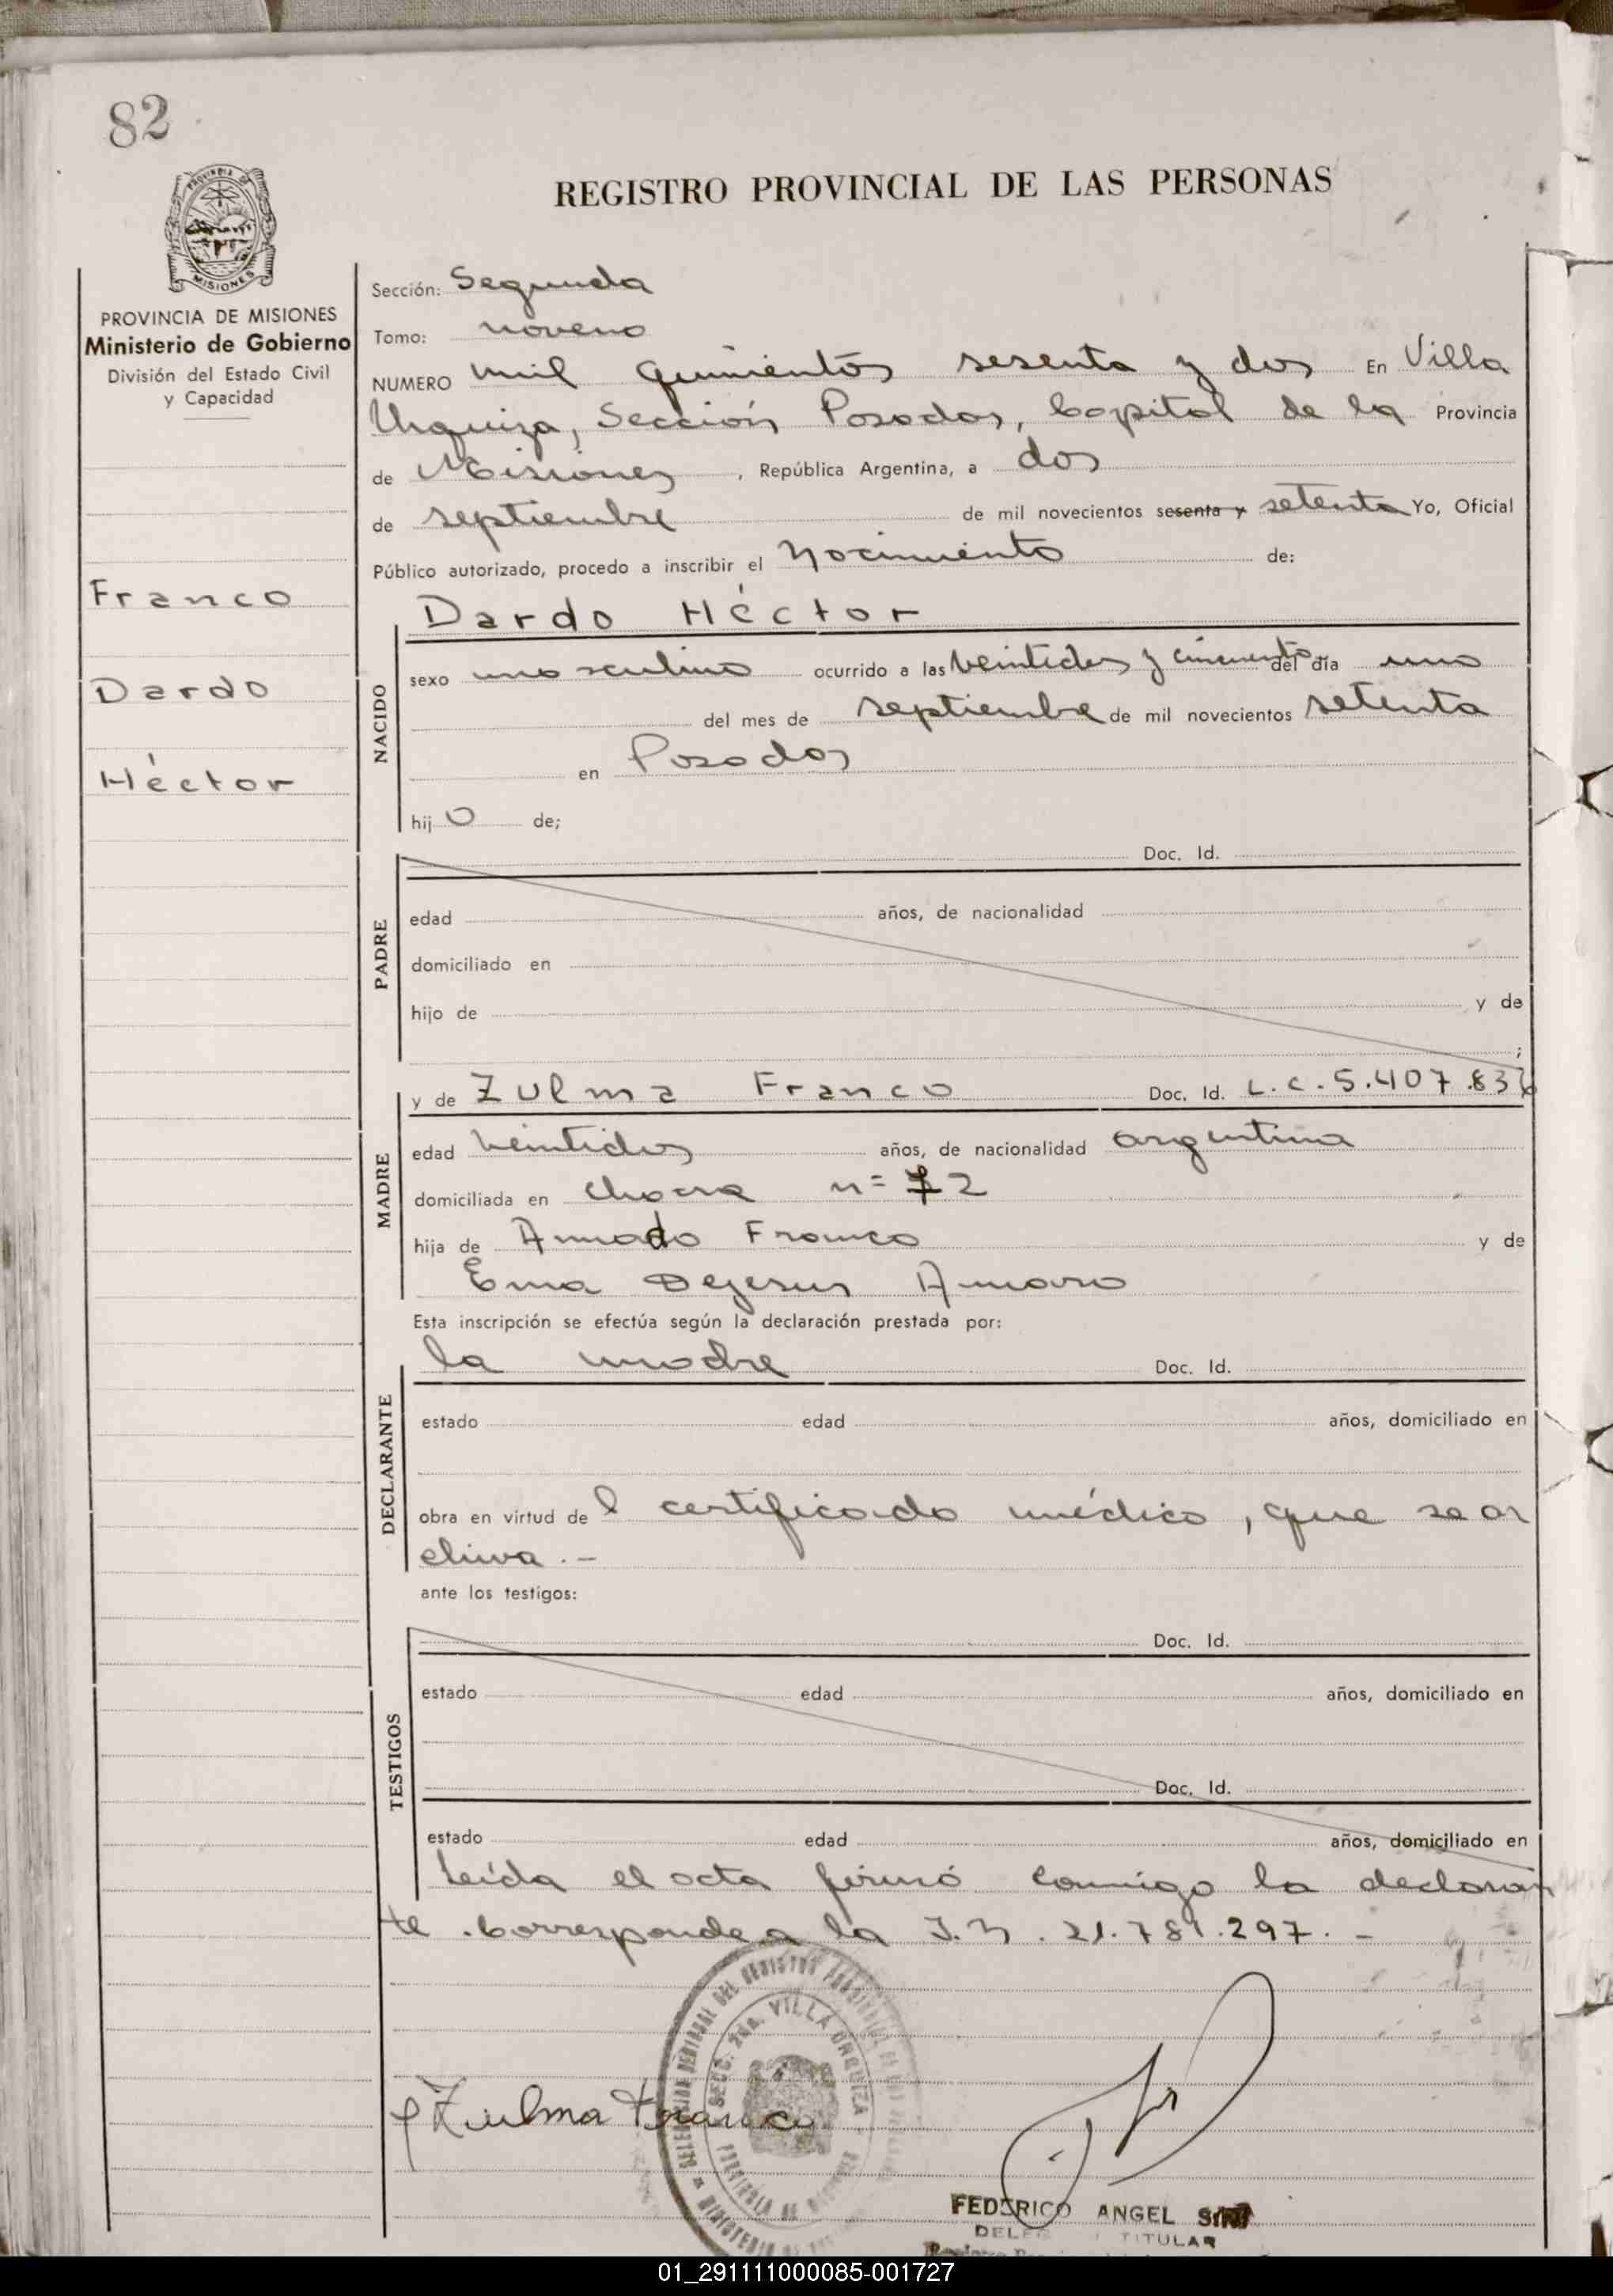 82
REGISTRO PROVINCIAL DE LAS PERSONAS
PROVINCIA DE MISIONES
Ministerio de Gobierno
División del Estado Civil
y Capacidad
Franco
Dardo
Héctor
Sección: Segunda
Tomo: noveno
NUMERO mil quinientos sesenta y dos En Villa
Urquiza, Sección Posadas, Capital de la Provincia
de Misiones, República Argentina, a dos
de septiembre de mil novecientos sesenta y setenta Yo, Oficial
Público autorizado, procedo a inscribir el nacimiento de:
Dardo Héctor
NACIDO
sexo masculino ocurrido a las veintidos y cincuenta del día uno
del mes de septiembre de mil novecientos setenta
en Posadas
hijo de;
PADRE
Doc. Id.
edad años, de nacionalidad
domiciliado en
hijo de y de
;
MADRE
y de Zulma Franco Doc. Id. L.C. 5.407.836
edad veintidos años, de nacionalidad argentina
domiciliada en chacra n= 72
hija de Amado Franco y de
Ema Dejesus Amaro
Esta inscripción se efectúa según la declaración prestada por:
DECLARANTE
la madre Doc. Id.
estado edad años, domiciliado en
obra en virtud del certificado médico, que se ar
chiva.-
ante los testigos:
TESTIGOS
Doc. Id.
estado edad años, domiciliado en
Doc. Id.
estado edad años, domiciliado en
Leída el acta firmó conmigo la declaran
te. Corresponde a la I.N. 21.781.297.-
SECC. 2da. VILLA URQUIZA
Zulma Franco
FEDERICO ANGEL
TITULAR
01_291111000085-001727